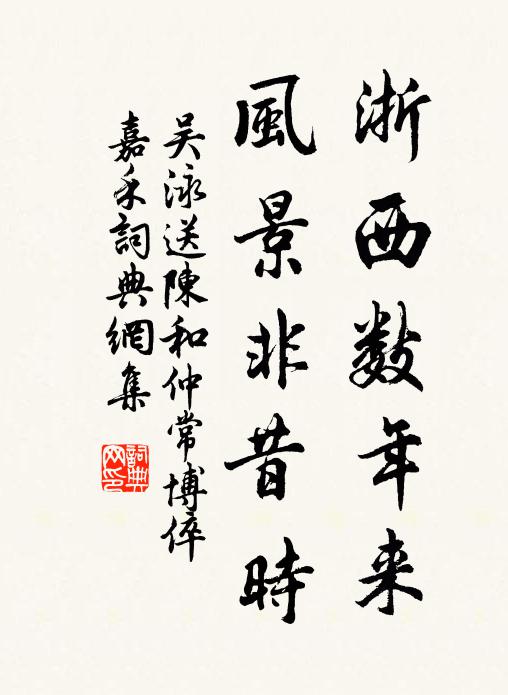 浙西数年来
風景非昔時
吴泳送陳和仲常博倅
嘉禾詞典網集
詞典网印